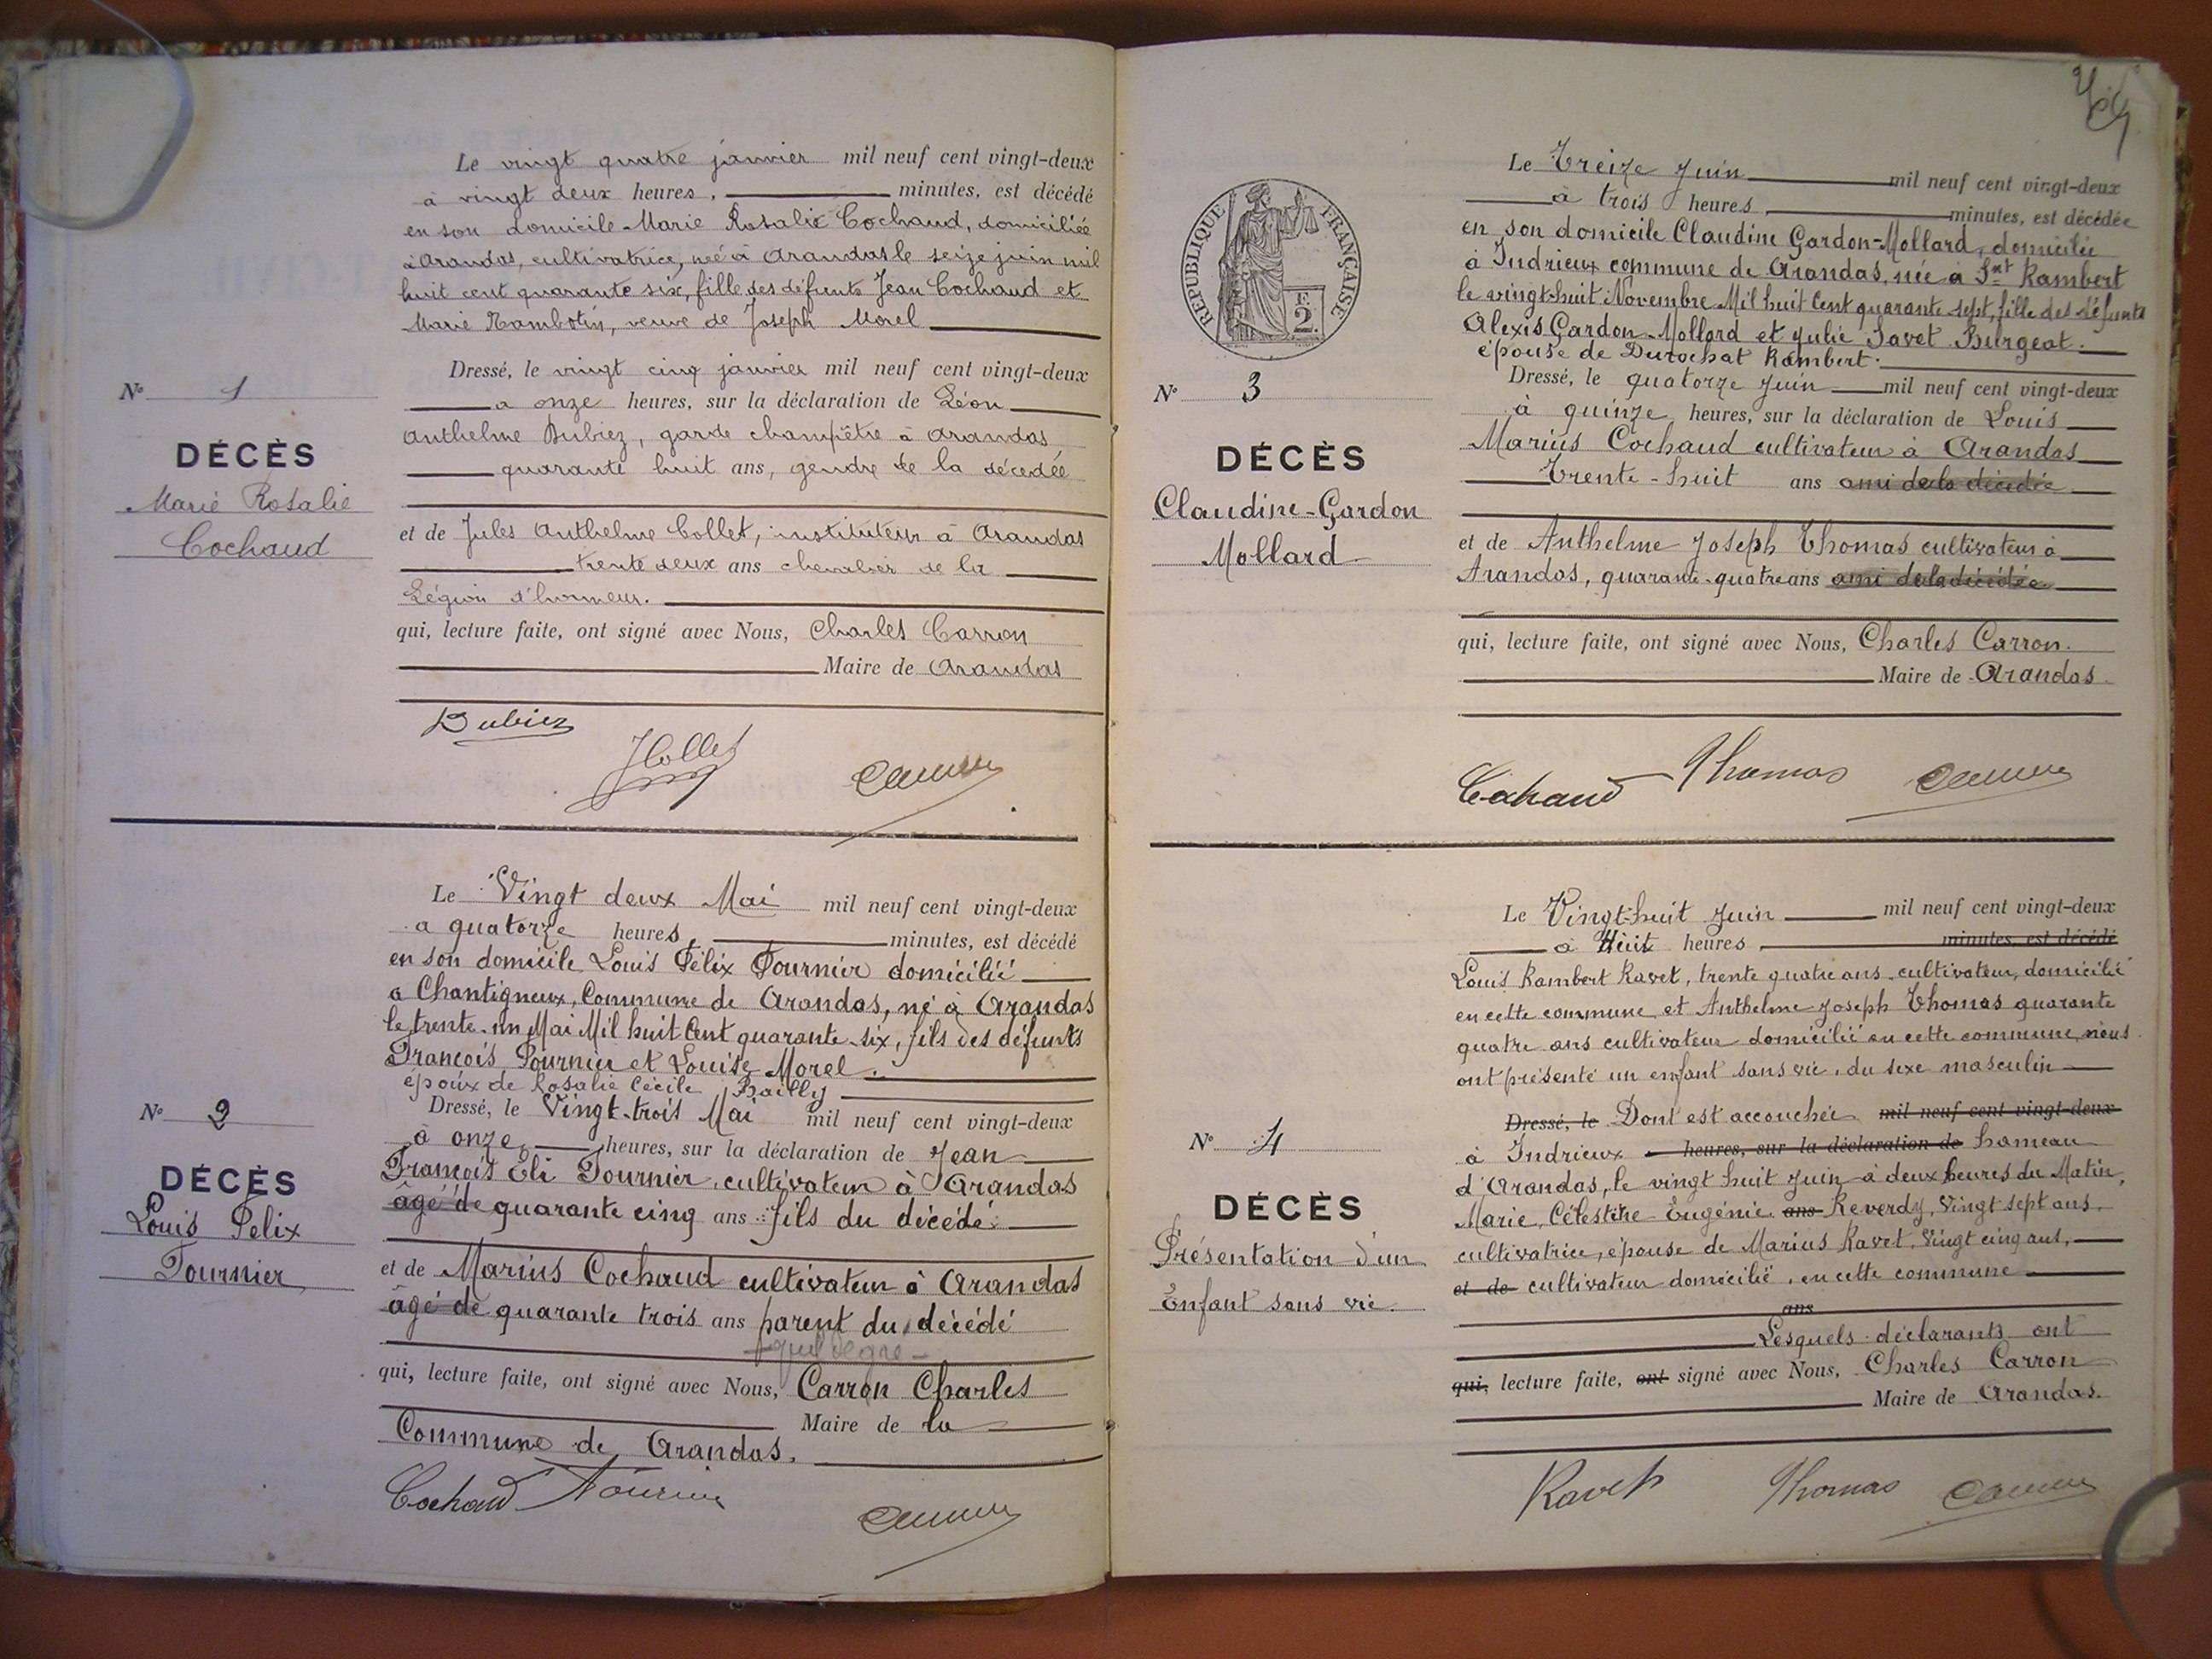 Le vingt quatre janvier mil neuf cent vingt-deux
à vingt deux heures, minutes, est décédé
en son domicile Marie Rosalie Cochaud, domiciliée
à Arandas, cultivatrice, née à Arandas le seize juin mil
huit cent quarante six, fille des défunts Jean Cochaud et
Marie Rambotin, veuve de Joseph Morel
Dressé, le vingt cinq janvier mil neuf cent vingt-deux
a onze heures, sur la déclaration de Léon
Anthelme Dubiez, garde champêtre à Arandas
quarante huit ans, gendre de la décedée
et de Jules Anthelme Collet, instituteur à Arandas
trente deux ans chevalier de la
Légion d'honneur.
qui, lecture faite, ont signé avec Nous, Charles Carron
Maire de Arandas
N° 1
DÉCÈS
Marie Rosalie
Cochaud
Dubiez
JCollet
Carron
Le Vingt deux Mai mil neuf cent vingt-deux
a quatorze heures, minutes, est décédé
en son domicile Louis Félix Fournier domicilié
a Chantigneux, Commune de Arandas, né à Arandas
le trente-un Mai Mil huit Cent quarante-six, fils des défunts
François Fournier et Louise Morel.
époux de Rosalie Cécile Bailly
Dressé, le Vingt-trois Mai mil neuf cent vingt-deux
à onze heures, sur la déclaration de Jean
François Eli Fournier, cultivateur à Arandas
âgé de quarante cinq ans fils du décédé
et de Marius Cochaud cultivateur à Arandas
âgé de quarante trois ans parent du décédé
quel degré
qui, lecture faite, ont signé avec Nous, Carron Charles
Maire de la
Commune de Arandas.
N° 2
DÉCÈS
Louis Felix
Fournier
Cochaud Fournier
Carron
RÉPUBLIQUE FRANÇAISE
2 F.
Le Treize Juin mil neuf cent vingt-deux
à trois heures, minutes, est décédée
en son domicile Claudine Gardon-Mollard, domiciliée
à Indrieux commune de Arandas, née à Snt Rambert
le vingt-huit Novembre Mil huit Cent quarante-sept, fille des défunts
Alexis Gardon-Mollard et Julie Savet-Burgeat.
épouse de Durochat Rambert.
Dressé, le quatorze Juin mil neuf cent vingt-deux
à quinze heures, sur la déclaration de Louis
Marius Cochaud cultivateur à Arandas
Trente-huit ans ami de la décédée
et de Anthelme Joseph Thomas cultivateur à
Arandas, quarante-quatre ans ami de la décédée
qui, lecture faite, ont signé avec Nous, Charles Carron.
Maire de Arandas.
N° 3
DÉCÈS
Claudine-Gardon
Mollard
Cochaud Thomas Carron
Le Vingt-huit Juin mil neuf cent vingt-deux
à Huit heures, minutes, est décédé
Louis Rambert Ravet, trente quatre ans cultivateur, domicilié
en cette commune, et Anthelme Joseph Thomas quarante
quatre ans cultivateur domicilié en cette commune, nous
ont présenté un enfant sans vie, du sexe masculin
Dressé, le Dont est accouchée mil neuf cent vingt-deux
à Indrieux heures, sur la déclaration de hameau
d'Arandas, le vingt huit Juin à deux heures du Matin,
Marie, Célestine-Eugénie ans Reverdy, Vingt sept ans,
cultivatrice, épouse de Marius Ravet, Vingt cinq ans,
et de cultivateur domicilié, en cette commune
ans
Lesquels déclarants ont
qui, lecture faite, ont signé avec Nous, Charles Carron
Maire de Arandas.
N° 4
DÉCÈS
Présentation d'un
Enfant sans vie.
Ravet Thomas Carron